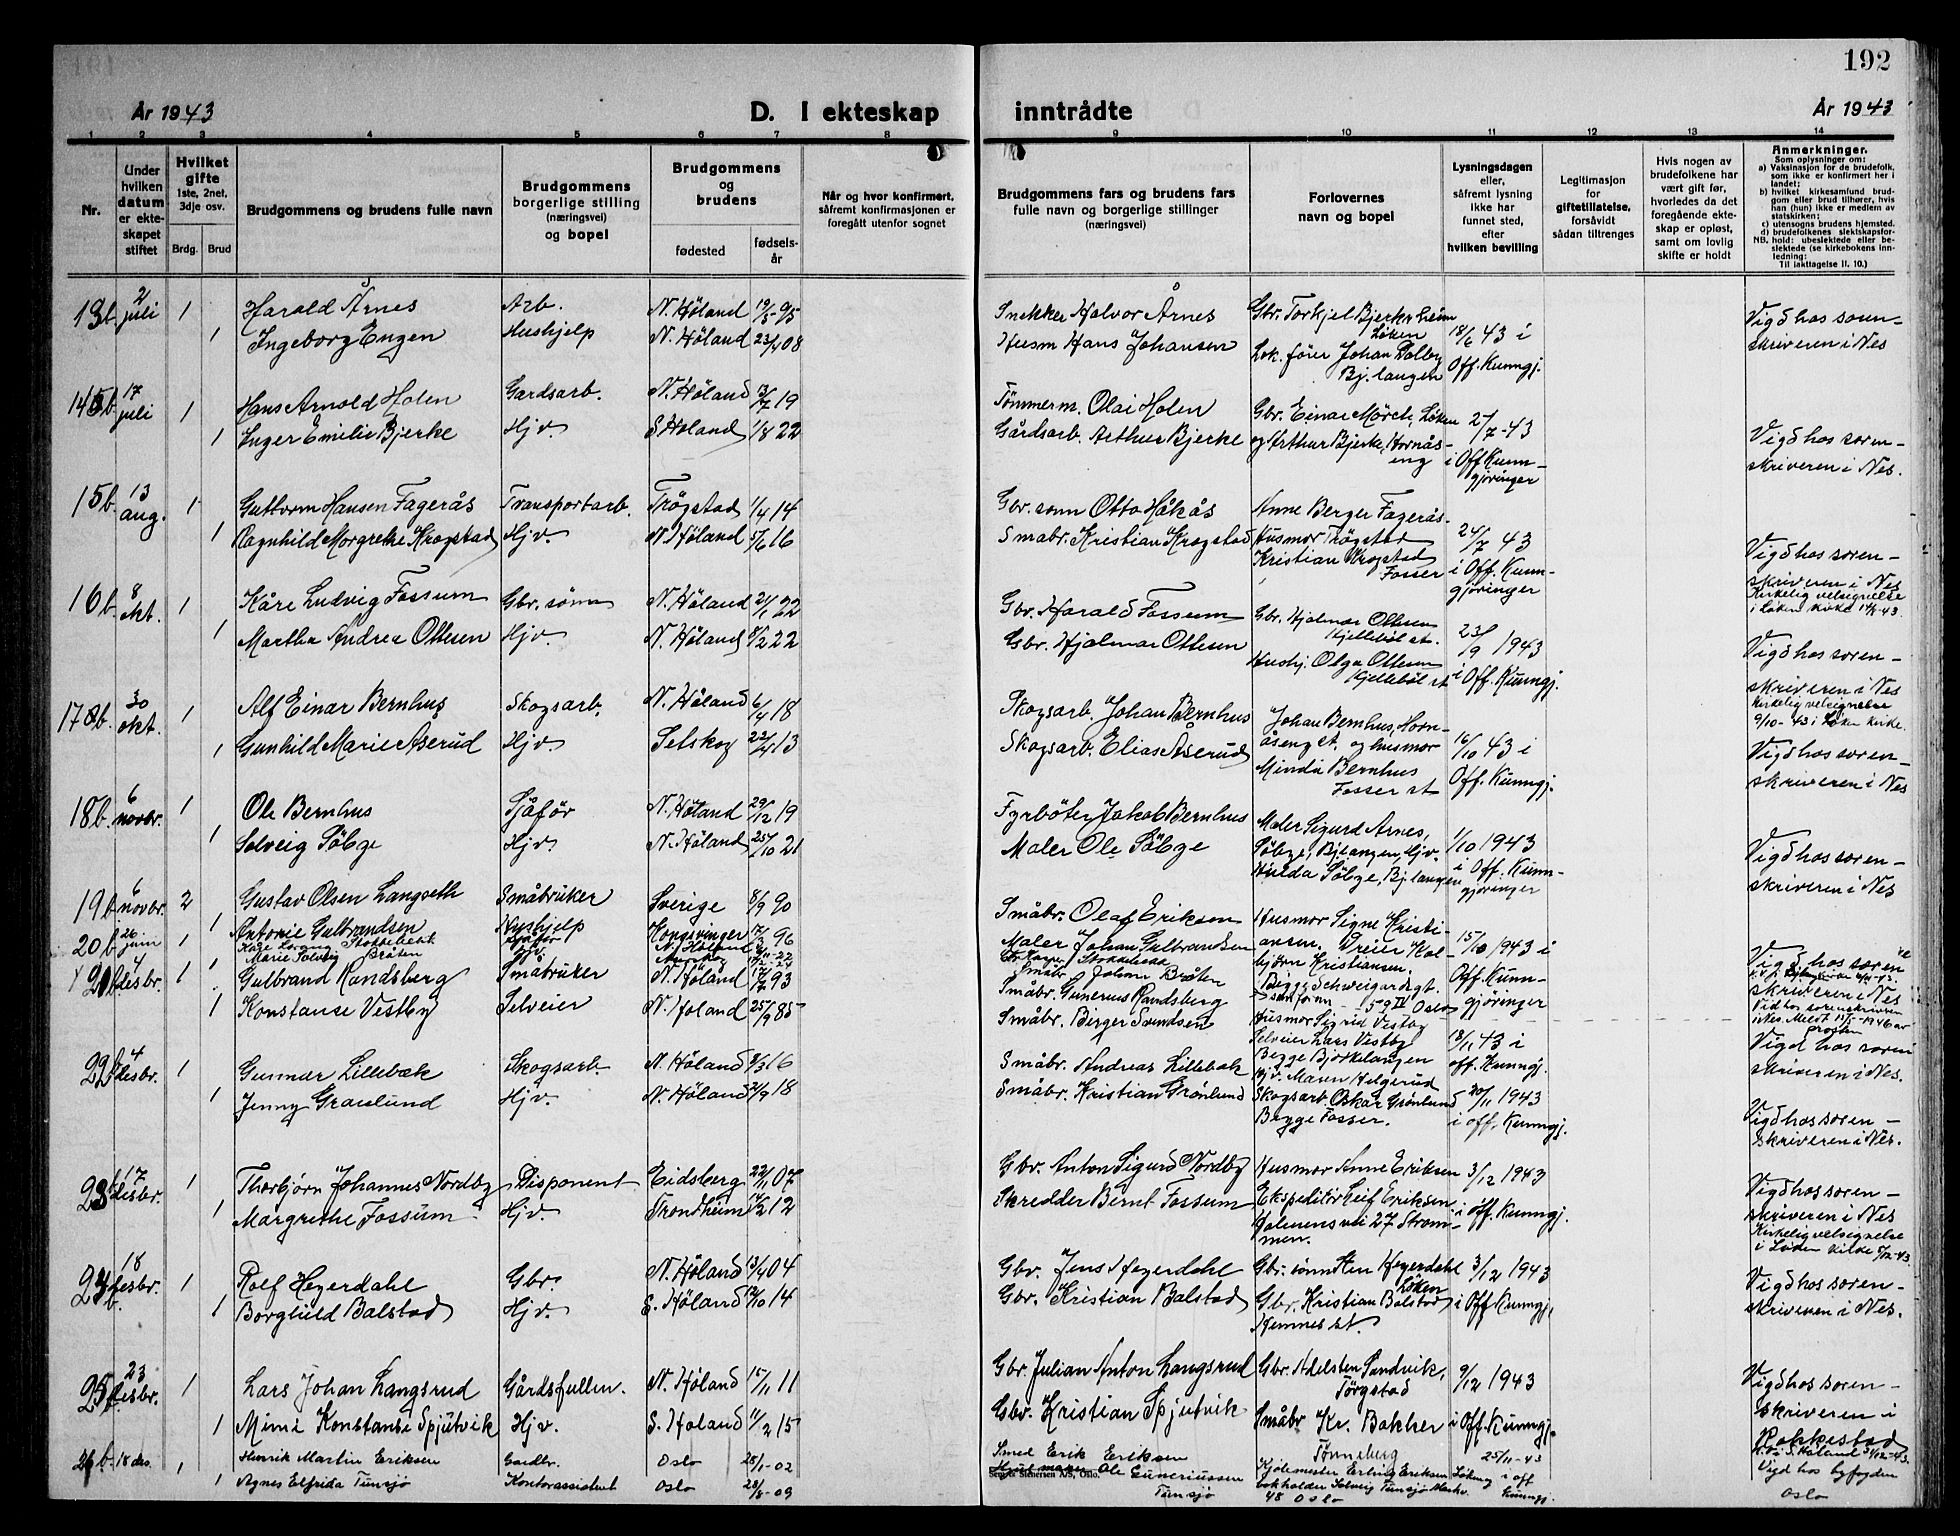 192
År 1943
D. I ekteskap inntrådte
År 1943
1 2 3 4 5 6 7 8 9 10 11 12 13 14
Nr.
Under hvilken datum er ekteskapet stiftet
Hvilket gifte 1ste, 2net, 3dje osv.
Brdg. Brud
Brudgommens og brudens fulle navn
Brudgommens borgerlige stilling (næringsvei) og bopel
Brudgommens og brudens
fødested
fødselsår
Når og hvor konfirmert, såfremt konfirmasjonen er foregått utenfor sognet
Brudgommens fars og brudens fars fulle navn og borgerlige stillinger (næringsvei)
Forlovernes navn og bopel
Lysningsdagen eller, såfremt lysning ikke har funnet sted, efter hvilken bevilling
Legitimasjon for giftetillatelse, forsåvidt sådan tiltrenges
Hvis nogen av brudefolkene har vært gift før, hvorledes da det foregående ekteskap er opløst, samt om lovlig skifte er holdt
Anmerkninger.
Som oplysninger om:
a) Vaksinasjon for de brudefolk, som ikke er konfirmert her i landet;
b) hvilket kirkesamfund brudgom eller brud tilhører, hvis han (hun) ikke er medlem av statskirken;
c) utensogns brudens hjemsted.
d) brudefolkenes slektskapsforhold: ubeslektede eller beslektede (se kirkebokens innledning:
NB. Til iakttagelse II. 10.)
13b. 2 juli 1 Harald Årnes Arb. N. Høland 19/5-95 Snekker Halvor Årnes Gbr. Torkjel Bjerknheim Løken 18/6 43 i Off. Kunngj. Vigd hos sorenskriveren i Nes
1 Ingeborg Engen Hushjelp N. Høland 23/4 08 Husm Hans Johansen Lok. fører Johan Dalby Bj. langen
14b. 17 juli 1 Hans Arnold Holen Gardsarb. N. Høland 13/7 19 Tømmerm. Olai Holen Gbr. Einar Mørch, Løken 2/7-43 i Off Kunngjøringer Vigd hos sorenskriveren i Nes.
1 Inger Emilie Bjerke Hjv. S Høland 1/8 22 Gårdsarb. Arthur Bjerke og Arthur Bjerke, Hornåseng
15b. 13 aug. 1 Guttorm Hansen Fagerås Transportarb. Trøgstad 1/4 14 Gbr. sønn Otto Håkås Anne Berger Fagerås. Husmor Trøgstad 24/7 43 i Off. Kunngjøringer Vigd hos sorenskriveren i Nes Kirkelig velsignelse i Løken kirke 14/8-43.
1 Ragnhild Margrethe Krogstad Hjv. N. Høland 5/6 16 Småbr. Kristian Krogstad Kristian Krogstad Fosser
16b. 8 okt. 1 Kåre Ludvig Fossum Gbr. sønn N. Høland 2/1 22 Gbr. Harald Fossum Gbr. Hjalmar Ottesen Kjellebøl st. 23/9 1943 i Off. Kunngj. Vigd hos sorenskriveren i Nes Kirkelig velsignelse 9/10-43 i Løken kirke.
1 Martha Andrea Ottesen Hjv. N. Høland 8/2 22 Gbr. Hjalmar Ottesen Hushj. Olga Ottesen Kjellebøl st
17b. 30 okt. 1 Alf Einar Bernhus Skogsarb. N. Høland 6/4 18 Skogsarb. Johan Bernhus Johan Bernhus, Hornåseng st. og husmor 16/10 43 i Off. Kunngj. Vigd hos sorenskriveren i Nes
1 Gunhild Marie Åserud Hjv. Setskog 22/4 13 Skogsarb. Elias Åserud Minda Bernhus Fosser st
18b. 6 novbr. 1 Ole Bernhus Sjåfør N. Høland 29/12 19 Fyrbøter Jakob Bernhus Maler Sigurd Årnes, 1/10 1943 i Off. Kunngjøringer Vigd hos sorenskriveren i Nes
1 Solveig Søbye Hjv. N. Høland 25/10 21 Maler Ole Søbye Søbye, Bj.langen, Hjv. Hulda Søbye, Bj langen
19b 6 novbr. 2 Gustav Olsen Langseth Småbruker Sverige 8/9 90 Småbr. Olaf Eriksen Husmor Signe Kristiansen. Dreier Kolbjørn Kristiansen. Begge Schweigårdsgt. 59 IV Oslo 15/10 1943 i Off. Kunngjøringer Vigd hos sorenskriveren i Nes
1 Antonie Gulbrandsen Hushjelp Kongsvinger 96 Maler Johan Gulbrandsen
20b 26 juni 1 Stokkebekk Sjåfør N. Høland 22
Marie Solveig Bråten Hjv. Aurskog Småbr. Johan Bråten
21b 4 desbr. 1 Gulbrand Randsberg Småbruker N. Høland 17/7 93 Småbr. Gunerius Randsberg Husmor Sigrid Vestby 18/11 43 i off. Kunngj. Vigd hos sorenskriveren i Nes.
Konstanse Vestby Selveier N. Høland 25/9 85 Småbr. Birger Svendsen Selveier Lars Vestby Begge Bjørkelangen
22b 4 desbr. 1 Gunnar Lillebæk Skogsarb. N. Høland 8/3 16 Småbr. Andreas Lillebæk Hjv. Maren Helgerud 20/11 1943 i off. Kunngj. Vigd hos sorenskriveren i Nes.
1 Jenny Grønlund Hjv. N. Høland 2/9 18 Småbr. Kristian Grønlund Skogsarb. Oskar Grønlund Begge Fosser.
23b 17 desbr. 1 Thorbjørn Johannes Nordby Disponent Eidsberg 22/1 07 Gbr. Anton Sigurd Nordby Husmor Anne Eriksen 3/12 1943 i off. Kunngj. Vigd hos sorenskriveren i Nes Kirkelig velsignelse i Løken kirke /12-43.
1 Margrethe Fossum Hjv. Trondheim 14/2 12 Skredder Bernt Fossum Ekspeditør Leif Eriksen Holmensvei 27 Strømmen.
24b. 18 desbr. 1 Rolf Hegerdahl Gbr. N. Høland 13/4 04 Gbr. Jens Hegerdahl Gbr. sønn Sten Hegerdahl Løken 3/12 1943 i Off Kunngj. Vigd hos sorenskriveren i Nes.
1 Borghild Balstad Hjv. S. Høland 12/10 14 Gbr. Kristian Balstad Gbr. Kristian Balstad Hemnes st.
25b 23 desbr. 1 Lars Johan Langsrud Gårdsfullm. N. Høland 15/11 11 Gbr. Julian Anton Langsrud Gbr. Adelsten Sandvik, Tørgstad 9/12 1943 i Off. Kunngj. Vigd hos sorenskriveren i Rakkestad
1 Mimi Konstanse Spjutvik Hjv. S. Høland 11/2 15 Gbr. Kristian Spjutvik Småbr Kr. Bakker Tønneberg
26b 18 des. 1 Henrik Martin Eriksen Gardbr. Oslo 28/1-02 Smed Erik Eriksen Kjølemester Erling Eriksen Løken 25/11-43 i off Kunngj. Vigd hos byfogden Oslo
1 Agnes Elfrida Tunsjø Kontorassistent Oslo 28/8-09 Ole Guneriussen Tunsjø bokholder Solveig Tunsjø 48 Oslo